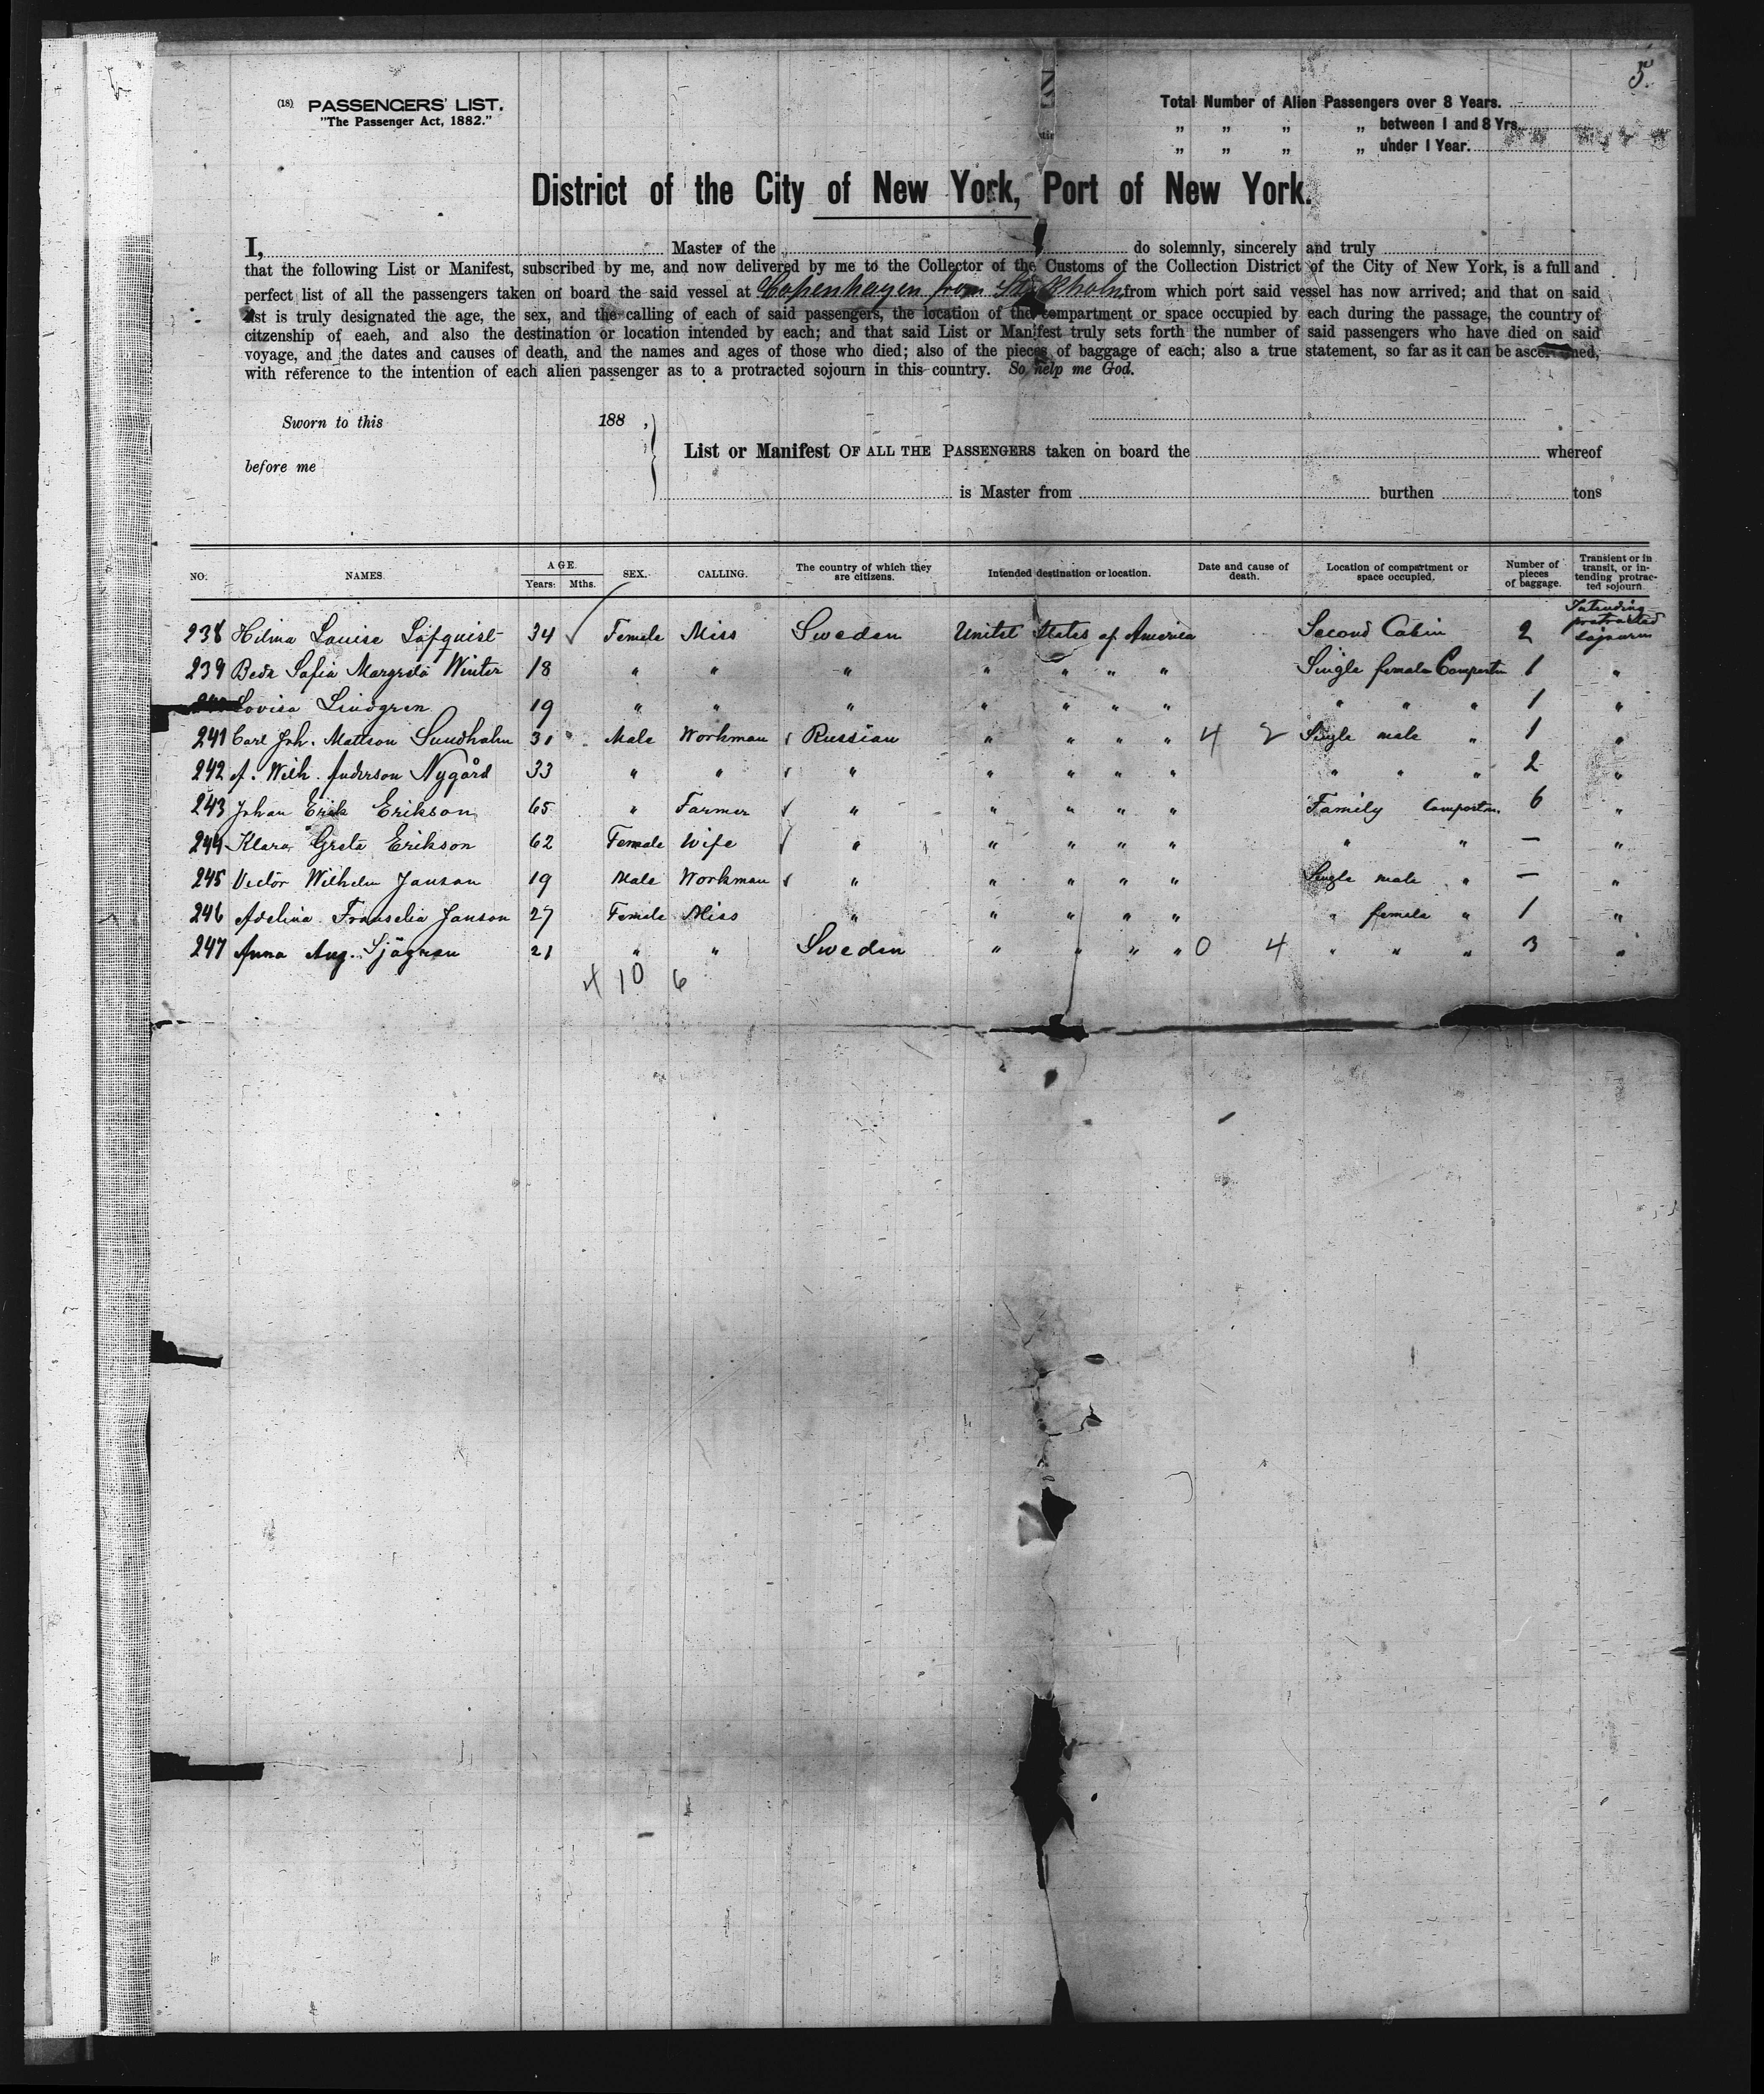 5.
(18) PASSENGERS' LIST.
"The Passenger Act, 1882."
Total Number of Alien Passengers over 8 Years.
„ „ „ „ between 1 and 8 Yrs.
„ „ „ „ under 1 Year.
District of the City of New York, Port of New York.
I, Master of the do solemnly, sincerely and truly
that the following List or Manifest, subscribed by me, and now delivered by me to the Collector of the Customs of the Collection District of the City of New York, is a full and
perfect list of all the passengers taken on board the said vessel at Copenhagen from Stockholm from which port said vessel has now arrived; and that on said
list is truly designated the age, the sex, and the calling of each of said passengers, the location of the compartment or space occupied by each during the passage, the country of
citzenship of each, and also the destination or location intended by each; and that said List or Manifest truly sets forth the number of said passengers who have died on said
voyage, and the dates and causes of death, and the names and ages of those who died; also of the pieces of baggage of each; also a true statement, so far as it can be ascertained,
with reference to the intention of each alien passenger as to a protracted sojourn in this country. So help me God.
Sworn to this 188 ,
before me
List or Manifest OF ALL THE PASSENGERS taken on board the whereof
is Master from burthen tons
NO. NAMES. AGE. Years. Mths. SEX. CALLING. The country of which they are citizens. Intended destination or location. Date and cause of death. Location of compartment or space occupied. Number of pieces of baggage. Transient or in transit, or intending protracted sojourn.
238 Hilma Louise Löfquist 34 Female Miss Sweden United States of America Second Cabin 2 Intending protracted sojourn
239 Beda Sofia Margreta Winter 18 " " " " " " " Single female Compartm 1 "
Lovisa Lindgren 19 " " " " " " " " " " 1 "
241 Carl Joh. Mattson Sundholm 31 Male Workman Russian " " " " 4 2 Single male " 1 "
242 A. Wilh. Anderson Nygård 33 " " " " " " " " " " 2 "
243 Johan Erik Erikson 65 " Farmer " " " " " Family Compartm. 6 "
244 Klara Greta Erikson 62 Female Wife " " " " " " " — "
245 Victor Wilhelm Janson 19 Male Workman " " " " " Single male " — "
246 Adelina Franselia Janson 27 Female Miss " " " " " " female " 1 "
247 Anna Aug. Sjögren 21 " " Sweden " " " " 0 4 " " " 3 "
10 6